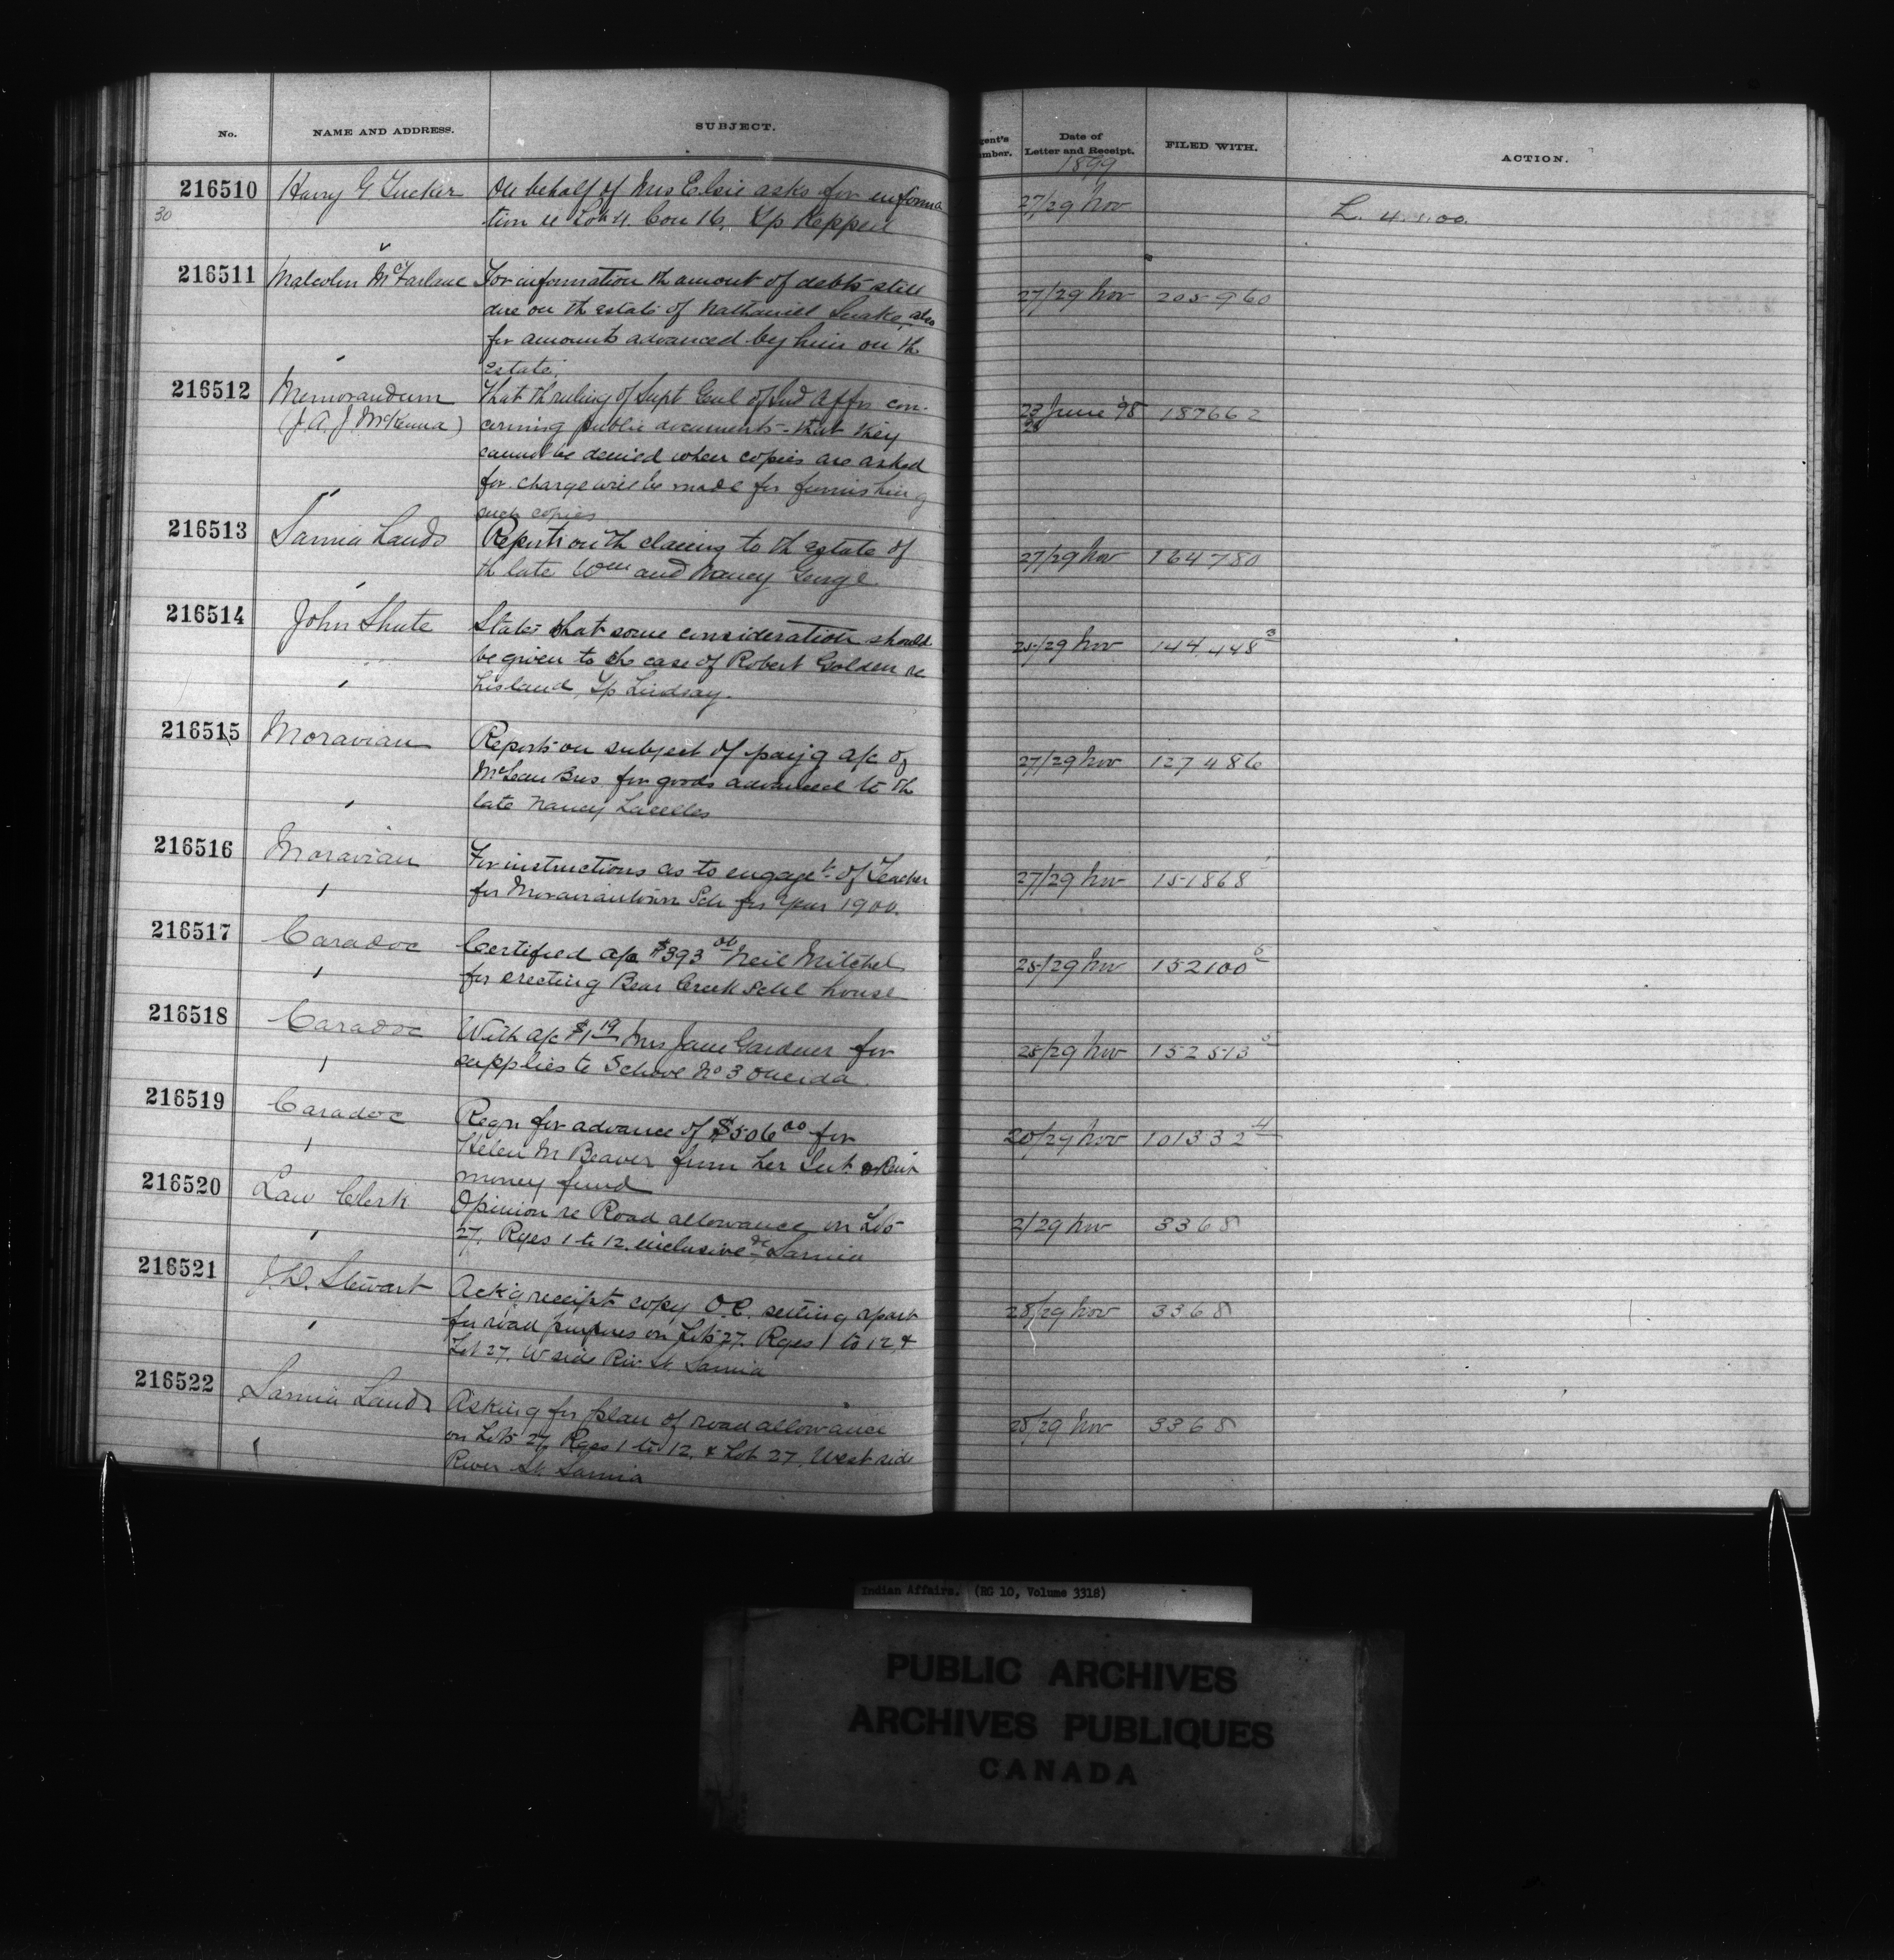 No. NAME AND ADDRESS. SUBJECT. gent's umber. Date of Letter and Receipt. FILED WITH. ACTION.
1899
216510 Harry G Tucker On behalf of Mrs Elsie asks for informa 27/29 Nov L. 4.1.00.
30 tion re Lot 4. Con 16, Tp Keppel
216511 Malcolm McFarlane For information th amount of debts still 27/29 Nov 205960
due on th estate of Nathaniel Snake, also
for amounts advanced by him on th
estate.
216512 Memorandum That th ruling of Supt Genl of Ind Affrs con- 23 June '98 187662
(J. A. J. McKenna) cerning public documents - that they
28
cannot be denied when copies are asked
for. charge will be made for furnishing
such copies
216513 Sarnia Lands Reports on th claims to th estate of 27/29 Nov 164780
th late Wm and Nancy George
216514 John Shute States that some consideration should 25/29 Nov 144448 3
be given to the case of Robert Golden re
his land, Tp Lindsay.
216515 Moravian Reports on subject of payg a/c of 27/29 Nov 127486
McLean Bros for goods advanced to th
late Nancy Lacelles
216516 Moravian For instructions as to engaget of Teacher 27/29 Nov 151868
for Moraviantown Sch for year 1900.
216517 Caradoc Certified a/c $393 00 Neil Mitchel 25/29 Nov 152100 5
for erecting Bear Creek Schl house
216518 Caradoc With a/c $1 19 Mrs Jane Gardner for 25/29 Nov 152513 5
supplies to School No 3 Oneida.
216519 Caradoc Reqn for advance of $506 00 for 20/29 Nov 101332 4
Helen M Beaver from her Int & Rent
money fund
216520 Law Clerk Opinion re Road allowance on Lots 2/29 Nov 3368
27, Rges 1 to 12 inclusive Sarnia
216521 J. D. Stewart Ackg receipt copy O.C. setting apart 28/29 Nov 3368
for road purposes on Lots 27. Rges 1 to 12, &
Lot 27. W side Riv. St. Sarnia
216522 Sarnia Lands Asking for plan of road allowance 28/29 Nov 3368
on Lots 27, Rges 1 to 12, & Lot 27, West side
River St. Sarnia
Indian Affairs. (RG 10, Volume 3318)
PUBLIC ARCHIVES
ARCHIVES PUBLIQUES
CANADA